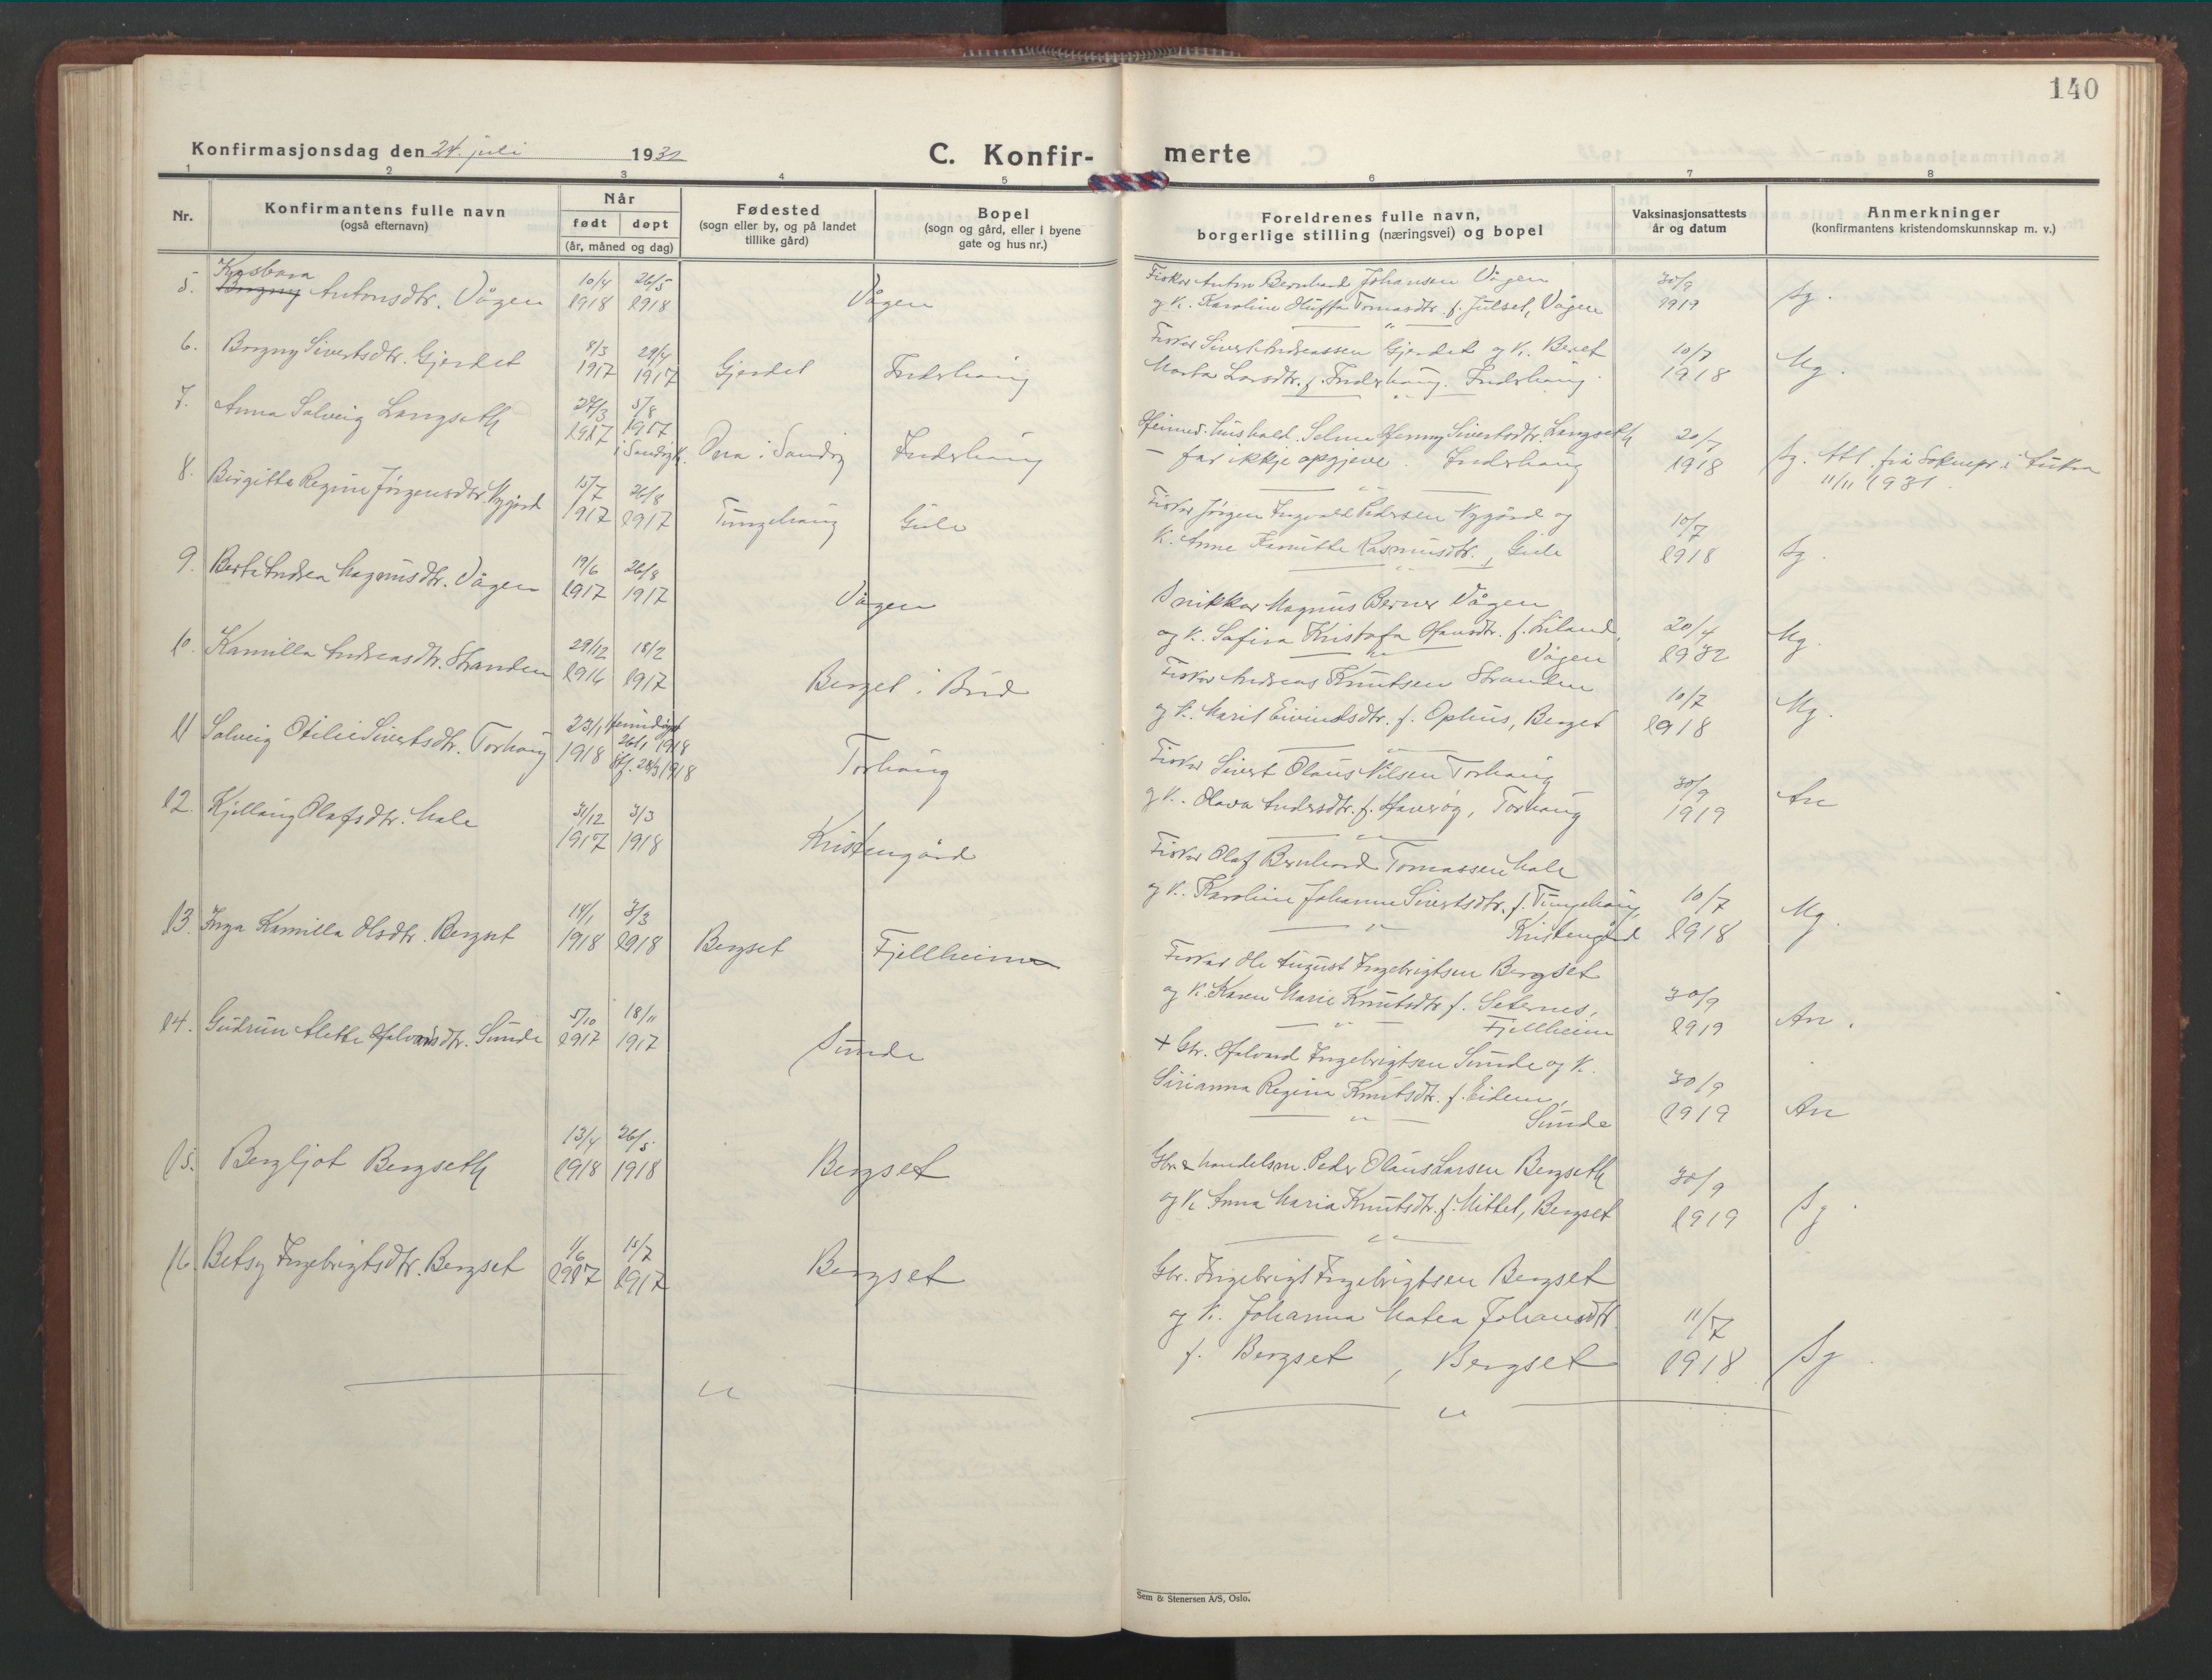 140
Konfirmasjonsdag den 24. juli 1932
C. Konfir- merte
1 2 3 4 5 6 7 8
Nr.
Konfirmantens fulle navn
(også efternavn)
Når
født døpt
(år, måned og dag)
Fødested
(sogn eller by, og på landet
tillike gård)
Bopel
(sogn og gård, eller i byene
gate og hus nr.)
Foreldrenes fulle navn,
borgerlige stilling (næringsvei) og bopel
Vaksinasjonsattests
år og datum
Anmerkninger
(konfirmantens kristendomskunnskap m. v.)
5. Borgny Antonsdtr. Vågen 10/4 1918 26/5 1918 Vågen
Fisker Anton Bernhard Johansen Vågen
og K. Karoline Oluffa Tomasdtr. f. Julset, Vågen
30/9 1919 Sg.
6. Borgny Sivertsdtr. Gjerdet 8/3 1917 29/4 1917 Gjerdet Inderhaug
Fisker Sivert Andreassen Gjerdet og K. Beret
Marta Larsdtr. f. Inderhaug. Inderhaug.
10/7 1918 Mg.
7. Anna Solveig Langseth 27/3 1917 5/8 1917 i Sandøy k. Ona i Sandøy Inderhaug
Heimev. hushald. Selma Henny Sivertsdtr. Langseth
– far ikkje opgjeve. Inderhaug
20/7 1918 Sg. Att. frå Soknepr. i Aukra
11/11 1931.
8. Birgitte Regine Jørgensdtr. Nygård 15/7 1917 26/8 1917 Tungehaug Gule
Fisker Jørgen Ingvald Pedersen Nygård og
K. Anne Rasmusdtr., Gule
10/7 1918 Sg.
9. Berte Andrea Magnusdtr. Vågen 19/6 1917 26/8 1917 Vågen
Snikkar Magnus Berner Vågen
og K. Safira Kristofa Hansdtr. f. Liland,
Vågen
20/4 1932 Mg.
10. Kamilla Andreasdtr. Stranden 29/12 1916 18/2 1917 Berget i Bud
Fisker Andreas Knutsen Stranden
og K. Marit Eivindsdtr. f. Ophus, Berget
10/7 1918 Mg.
11 Solveig Otilie Sivertsdtr. Torhaug 23/1 1918 Heimdøpt 26/1 1918 Stf. 28/3 1918 Torhaug
Fisker Sivert Olaus Nilsen Torhaug
og K. Olava Andersdtr. f. Harøy, Torhaug
30/9 1919 An
12. Kjellaug Olafsdtr. Male 31/12 1917 3/3 1918 Kristengård
Fisker Olaf Bernhard Tomassen Male
og K. Karoline Johanne Sivertsdtr. f. Tungehaug,
Kristengård
10/7 1918 Mg.
13. Inga Kamilla Olsdtr. Bergset 14/1 1918 3/3 1918 Bergset Fjellheim
Fisker Ole August Ingebrigtsen Bergset
og K. Karen Marie Knutsdtr. f. Seternes,
Fjellheim
30/9 1919 An.
14. Gudrun Alette Halvardsdtr. Sunde 5/10 1917 18/11 1917 Sunde
+ Gbr. Halvard Ingebrigtsen Sunde og K.
Sirianna Regina Knutsdtr. f. Eidem,
Sunde
30/9 1919 An
15. Bergljot Bergseth 13/4 1918 26/5 1918 Bergset
Gbr. & handelsm. Peder Olaus Larsen Bergseth
og K. Anna Maria Knutsdtr. f. Mittet, Bergset
30/9 1919 Sg
16. Betsy Ingebrigtsdtr. Bergset 1/6 1917 15/7 1917 Bergset
Gbr. Ingebrigt Ingebrigtsen Bergset
og K. Johanna Matea Johansdtr.
f. Bergset, Bergset
11/7 1918 Sg
Sem & Stenersen A/S, Oslo.